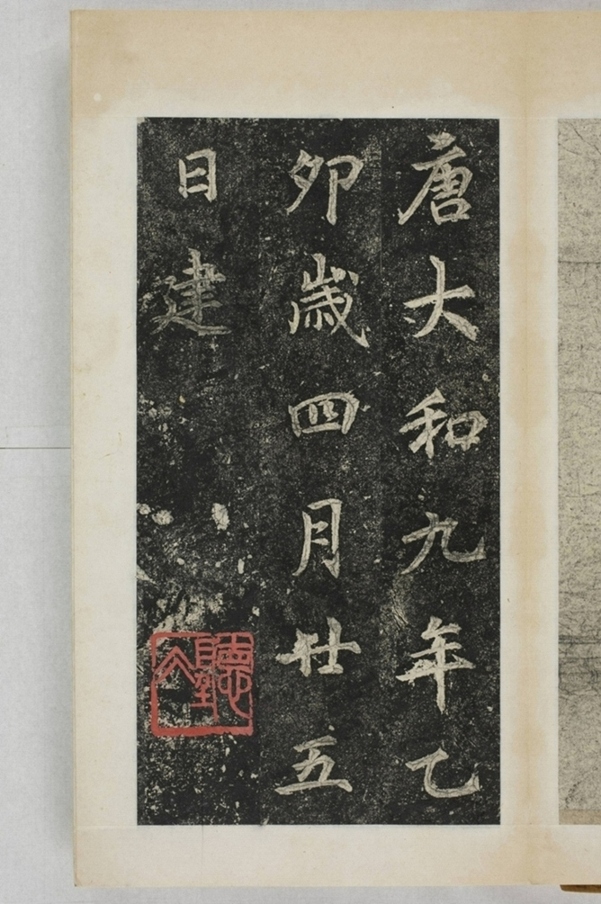 唐大和九年乙
卯歲四月廿五
日建